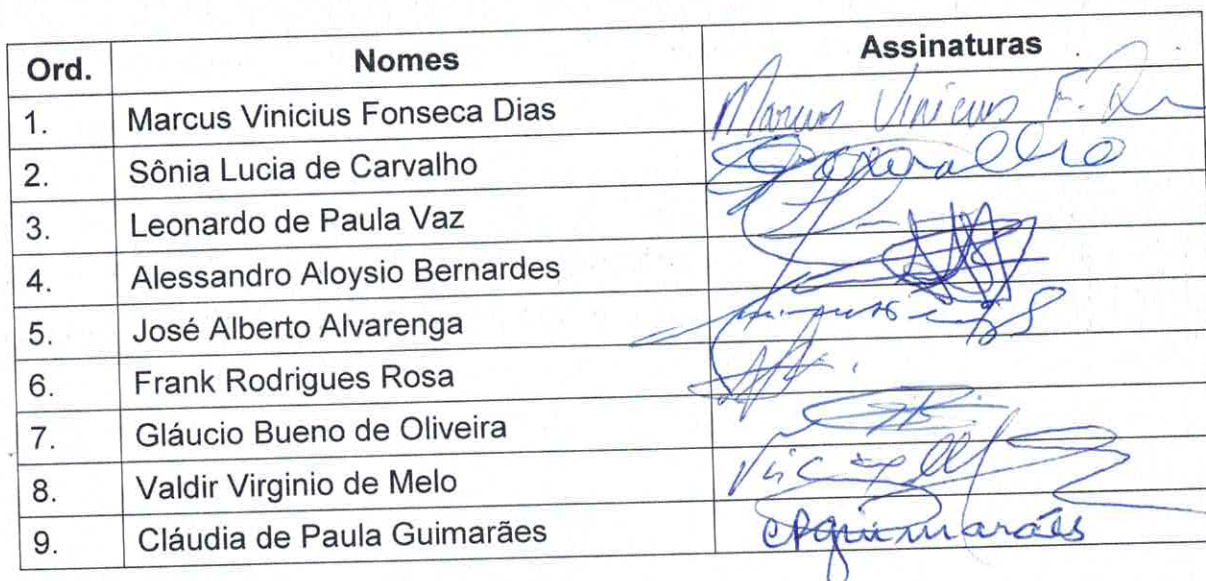 Ord. Nomes Assinaturas
1. Marcus Vinicius Fonseca Dias Marcus Vinicius F.
2. Sônia Lucia de Carvalho
3. Leonardo de Paula Vaz
4. Alessandro Aloysio Bernardes
5. José Alberto Alvarenga
6. Frank Rodrigues Rosa
7. Gláucio Bueno de Oliveira
8. Valdir Virginio de Melo
9. Cláudia de Paula Guimarães CPGuimarães